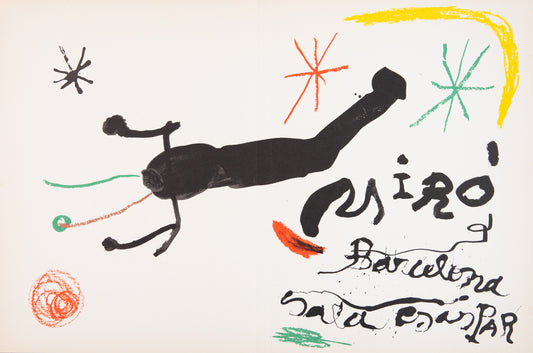 MIRÓ
Barcelona
sala GasPAR